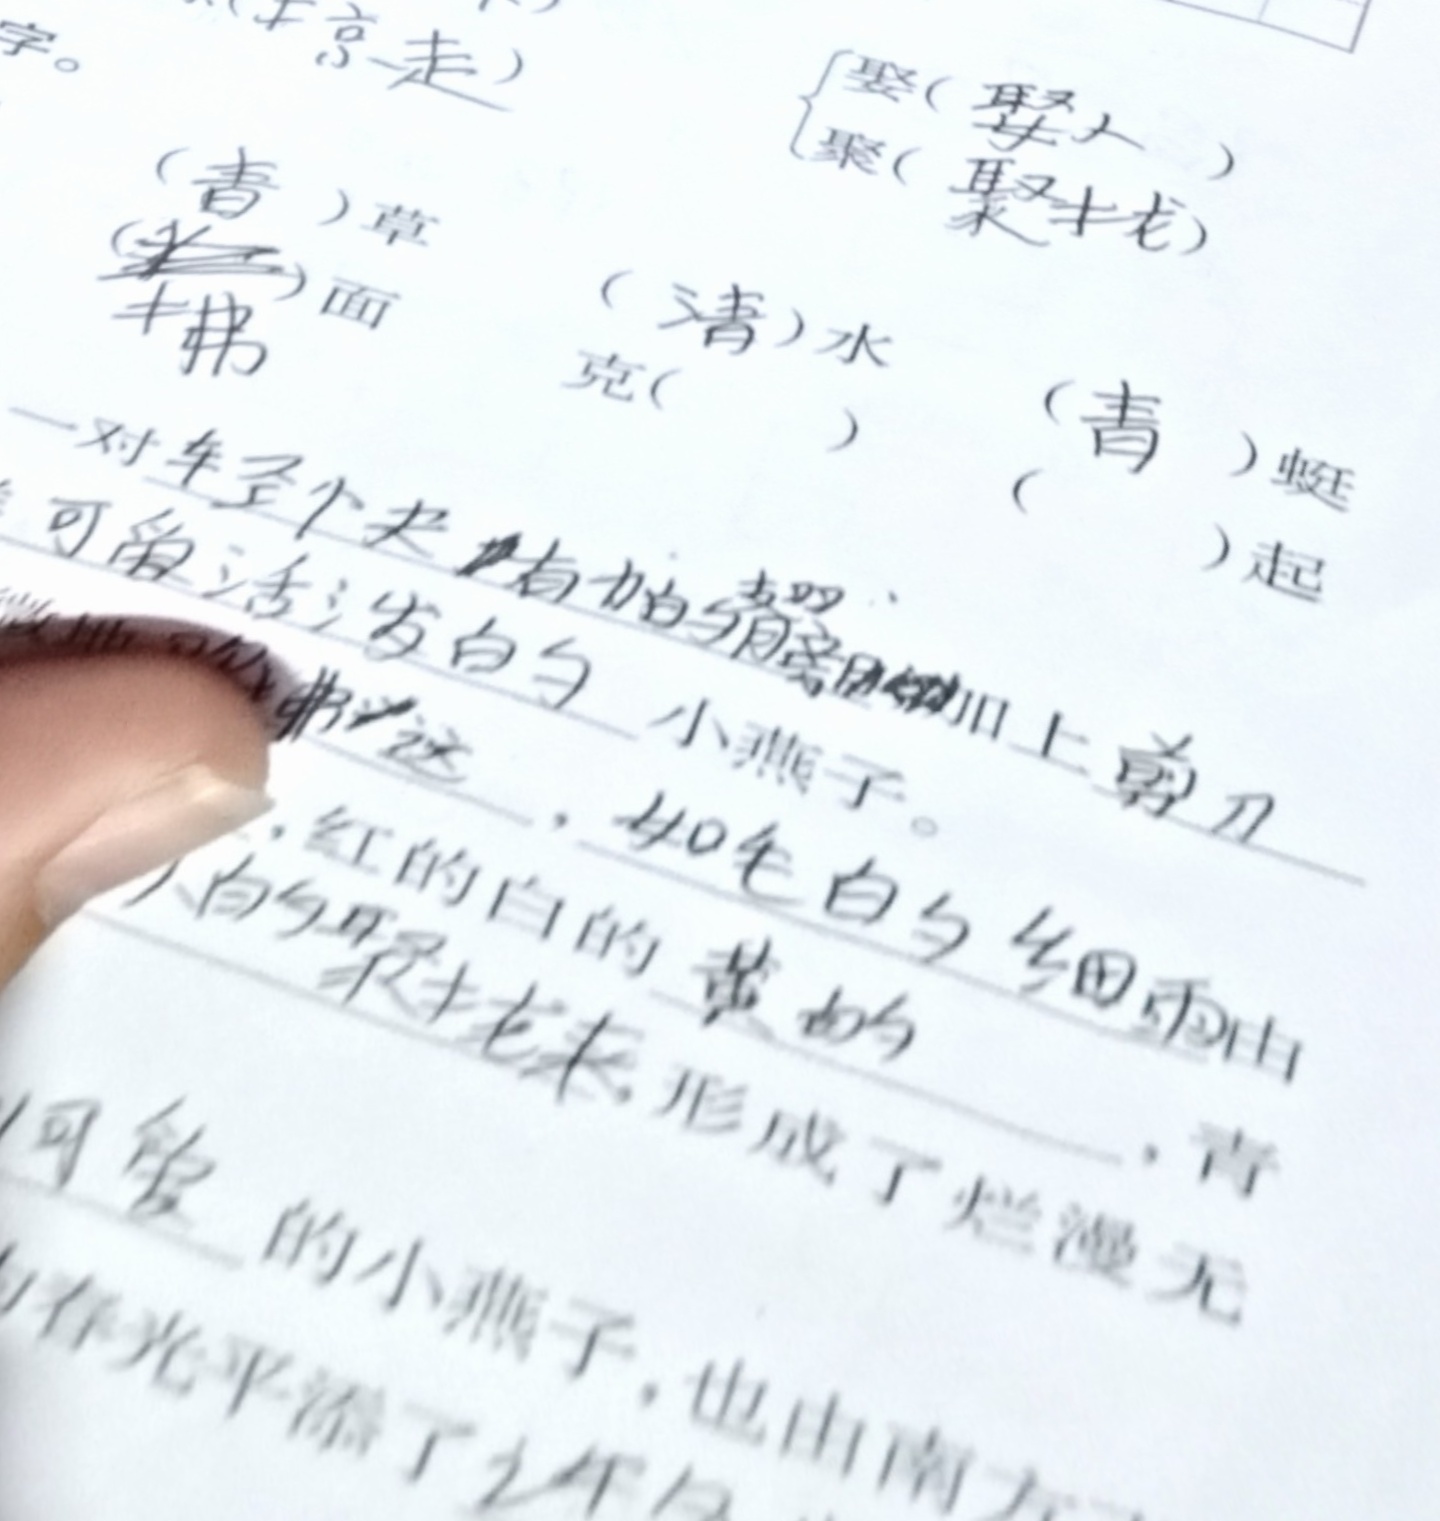 字。
掠走)
娶(娶人)
聚(聚拢)
(青)草
(清)水
(青)蜓
(拂)面
克( )
( )起
一对轻快有力的翅膀加上剪刀
可爱活泼的小燕子。
,如毛的细雨由
,红的白的黄的,青
的聚拢来,形成了烂漫无
可爱的小燕子,也由南方
春光平添了